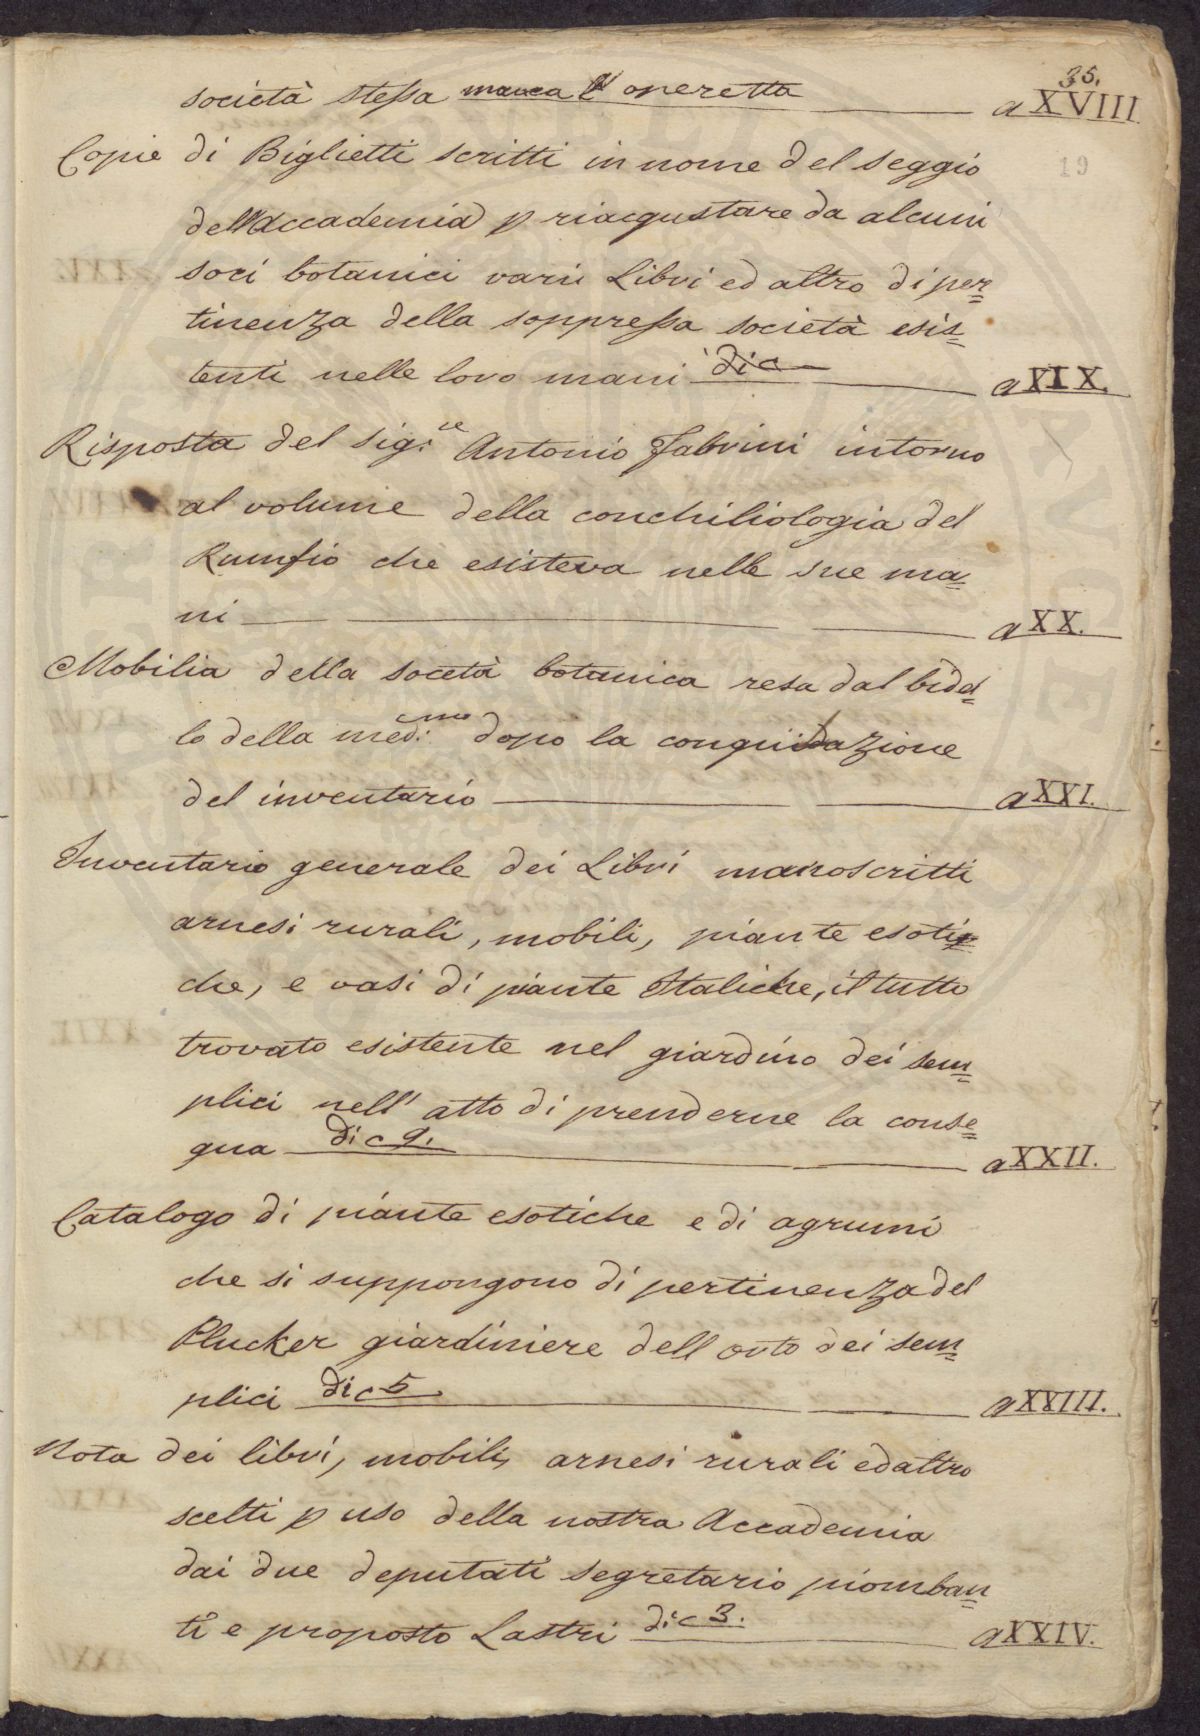 35.
società stessa manca l'operetta a XVIII.
19
Copie di Biglietti scritti in nome del seggio
dell'accademia p riacqustare da alcuni
soci botanici varii Libri ed altro di per=
tinenza della soppressa società esis=
tenti nelle loro mani dic a XIX.
Risposta del sig:re Antonio Fabrini intorno
al volume della conchiliologia del
Rumfio che esisteva nelle sue ma=
ni a XX.
Mobilia della socetà botanica resa dal bidel=
lo della med:ma dopo la
del inventario a XXI.
Inventario generale dei Libri manoscritti
arnesi rurali, mobili, piante esoti=
che, e vasi di piante Italiche, il tutto
trovato esistente nel giardino dei sem=
plici nell' atto di prenderne la conse=
gna dic 9. a XXII.
Catalogo di piante esotiche e di agrumi
che si suppongono di pertinenza del
Plucker giardiniere dell orto dei sem=
plici dic 5 a XXIII.
Nota dei libri, mobili, arnesi rurali ed altro
scelti p uso della nostra Accademia
dai due deputati segretario piomban=
ti e proposto Lastri dic 3. a XXIV.